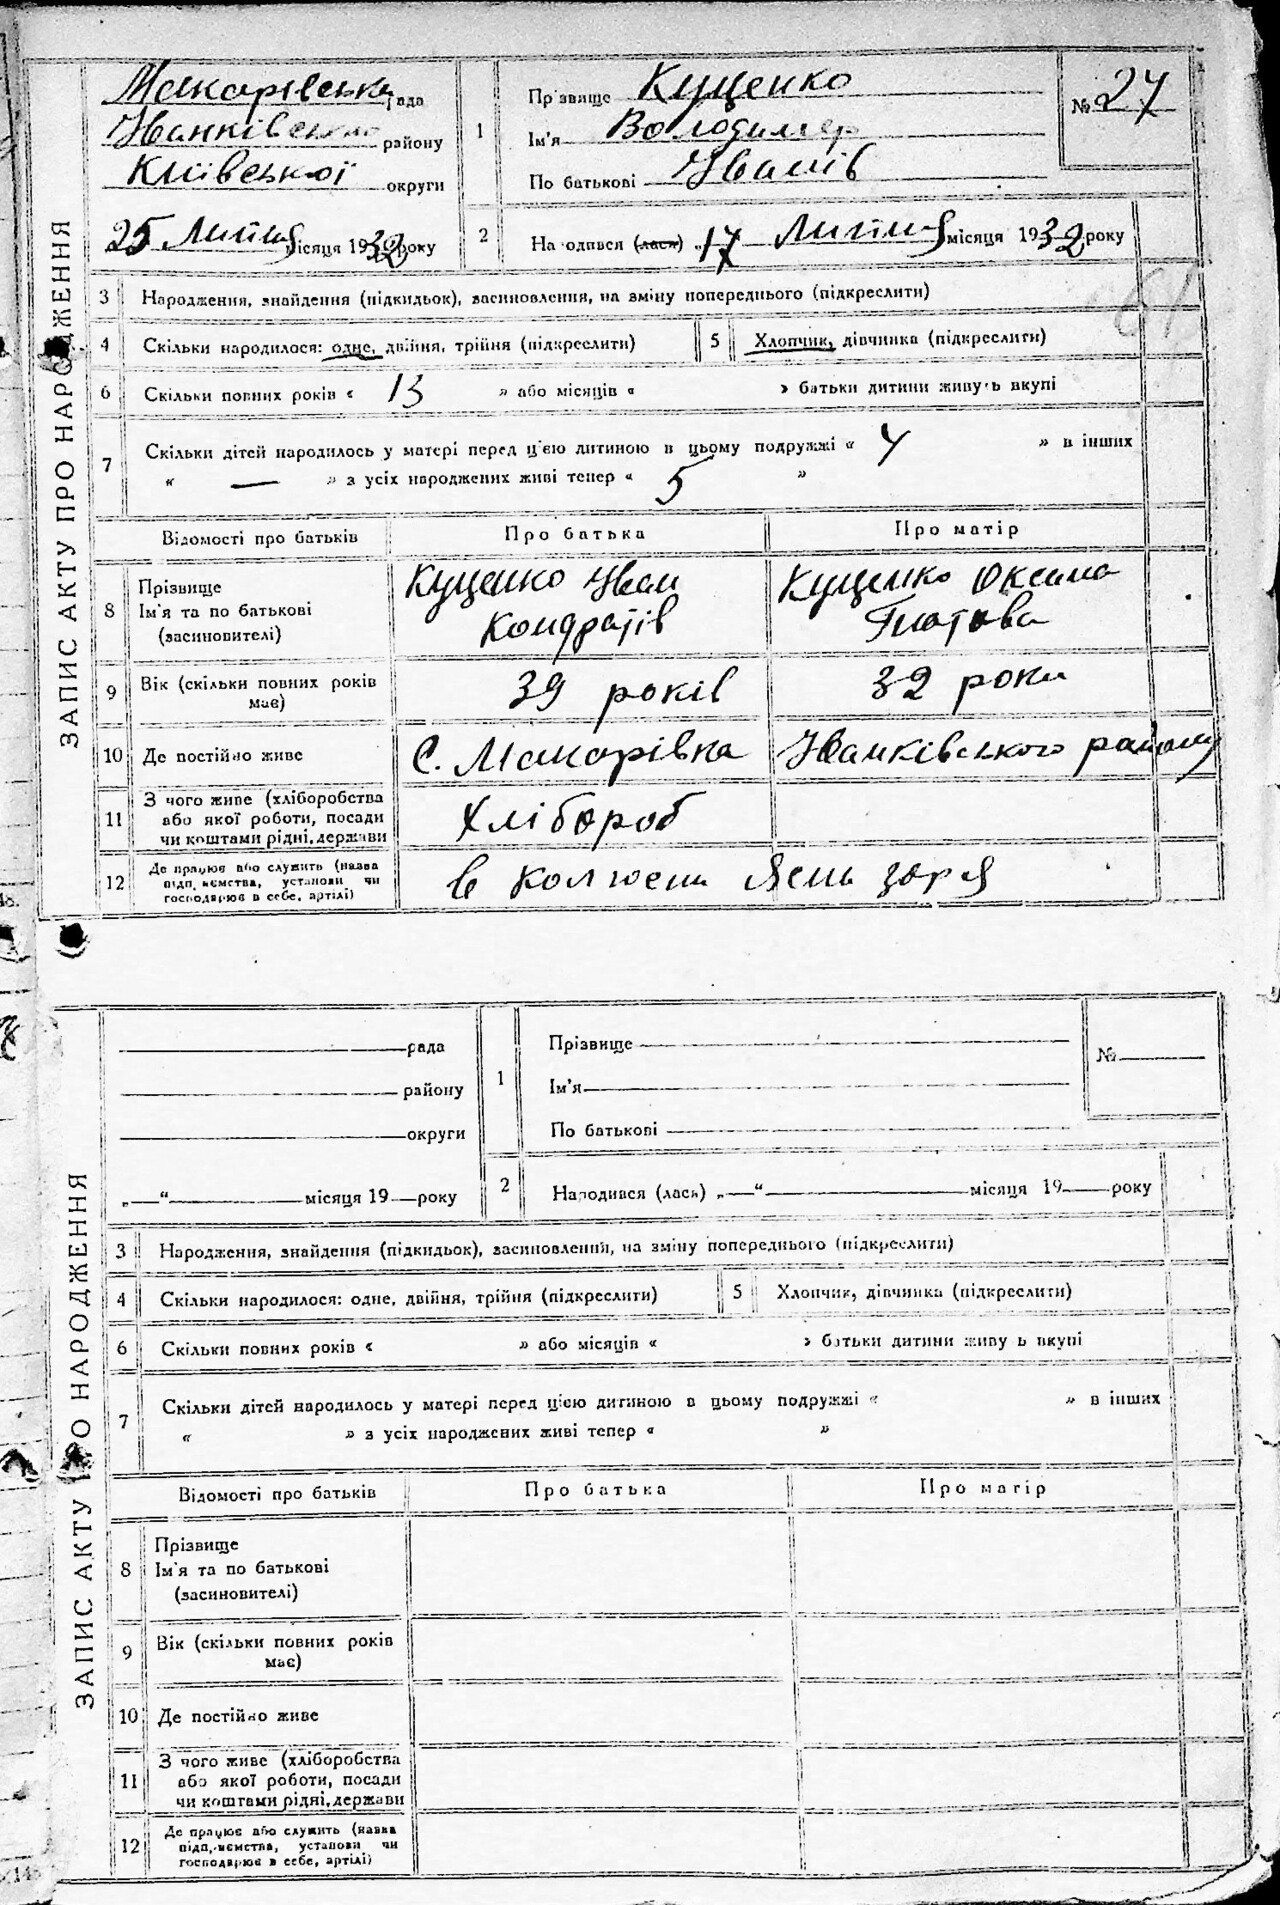 ЗАПИС АКТУ ПРО НАРОДЖЕННЯ
Макарівська рада
Іванківського району
Київської округи
25 Липня місяця 1932 року
1
Прізвище Куценко
Ім'я Володимер
По батькові Іванів
№ 27
2
Народився (лася) „17 Липня місяця 1932 року
3 Народження, знайдення (підкидьок), засиновлення, на зміну попереднього (підкреслити)
4 Скільки народилося: одне, двійня, трійня (підкреслити)
5 Хлопчик, дівчинка (підкреслити)
6 Скільки повних років « 13 » або місяців « » батьки дитини живуть вкупі
7 Скільки дітей народилось у матері перед цією дитиною в цьому подружжі « 4 » в інших
« — » з усіх народжених живі тепер « 5 »
Відомості про батьків Про батька Про матір
8 Прізвище
Ім'я та по батькові
(засиновителі)
Куценко Иван
Кондратів
Куценко Оксана
Гнатова
9 Вік (скільки повних років
має)
39 років 32 роки
10 Де постійно живе С. Макарівка Іванківського району
11 З чого живе (хліборобства
або якої роботи, посади
чи коштами рідні, держави
Хлібороб
12 Де працює або служить (назва
підприємства, установи чи
господарює в себе, артілі)
в колгоспі Ясна зоря
ЗАПИС АКТУ ПРО НАРОДЖЕННЯ
рада
району
округи
„—“ місяця 19 року
1
Прізвище
Ім'я
По батькові
№
2
Народився (лася) „—“ місяця 19 року
3 Народження, знайдення (підкидьок), засиновлення, на зміну попереднього (підкреслити)
4 Скільки народилося: одне, двійня, трійня (підкреслити)
5 Хлопчик, дівчинка (підкреслити)
6 Скільки повних років « » або місяців « » батьки дитини живуть вкупі
7 Скільки дітей народилось у матері перед цією дитиною в цьому подружжі « » в інших
« » з усіх народжених живі тепер « »
Відомості про батьків Про батька Про матір
8 Прізвище
Ім'я та по батькові
(засиновителі)
9 Вік (скільки повних років
має)
10 Де постійно живе
11 З чого живе (хліборобства
або якої роботи, посади
чи коштами рідні, держави
12 Де працює або служить (назва
підприємства, установи чи
господарює в себе, артілі)